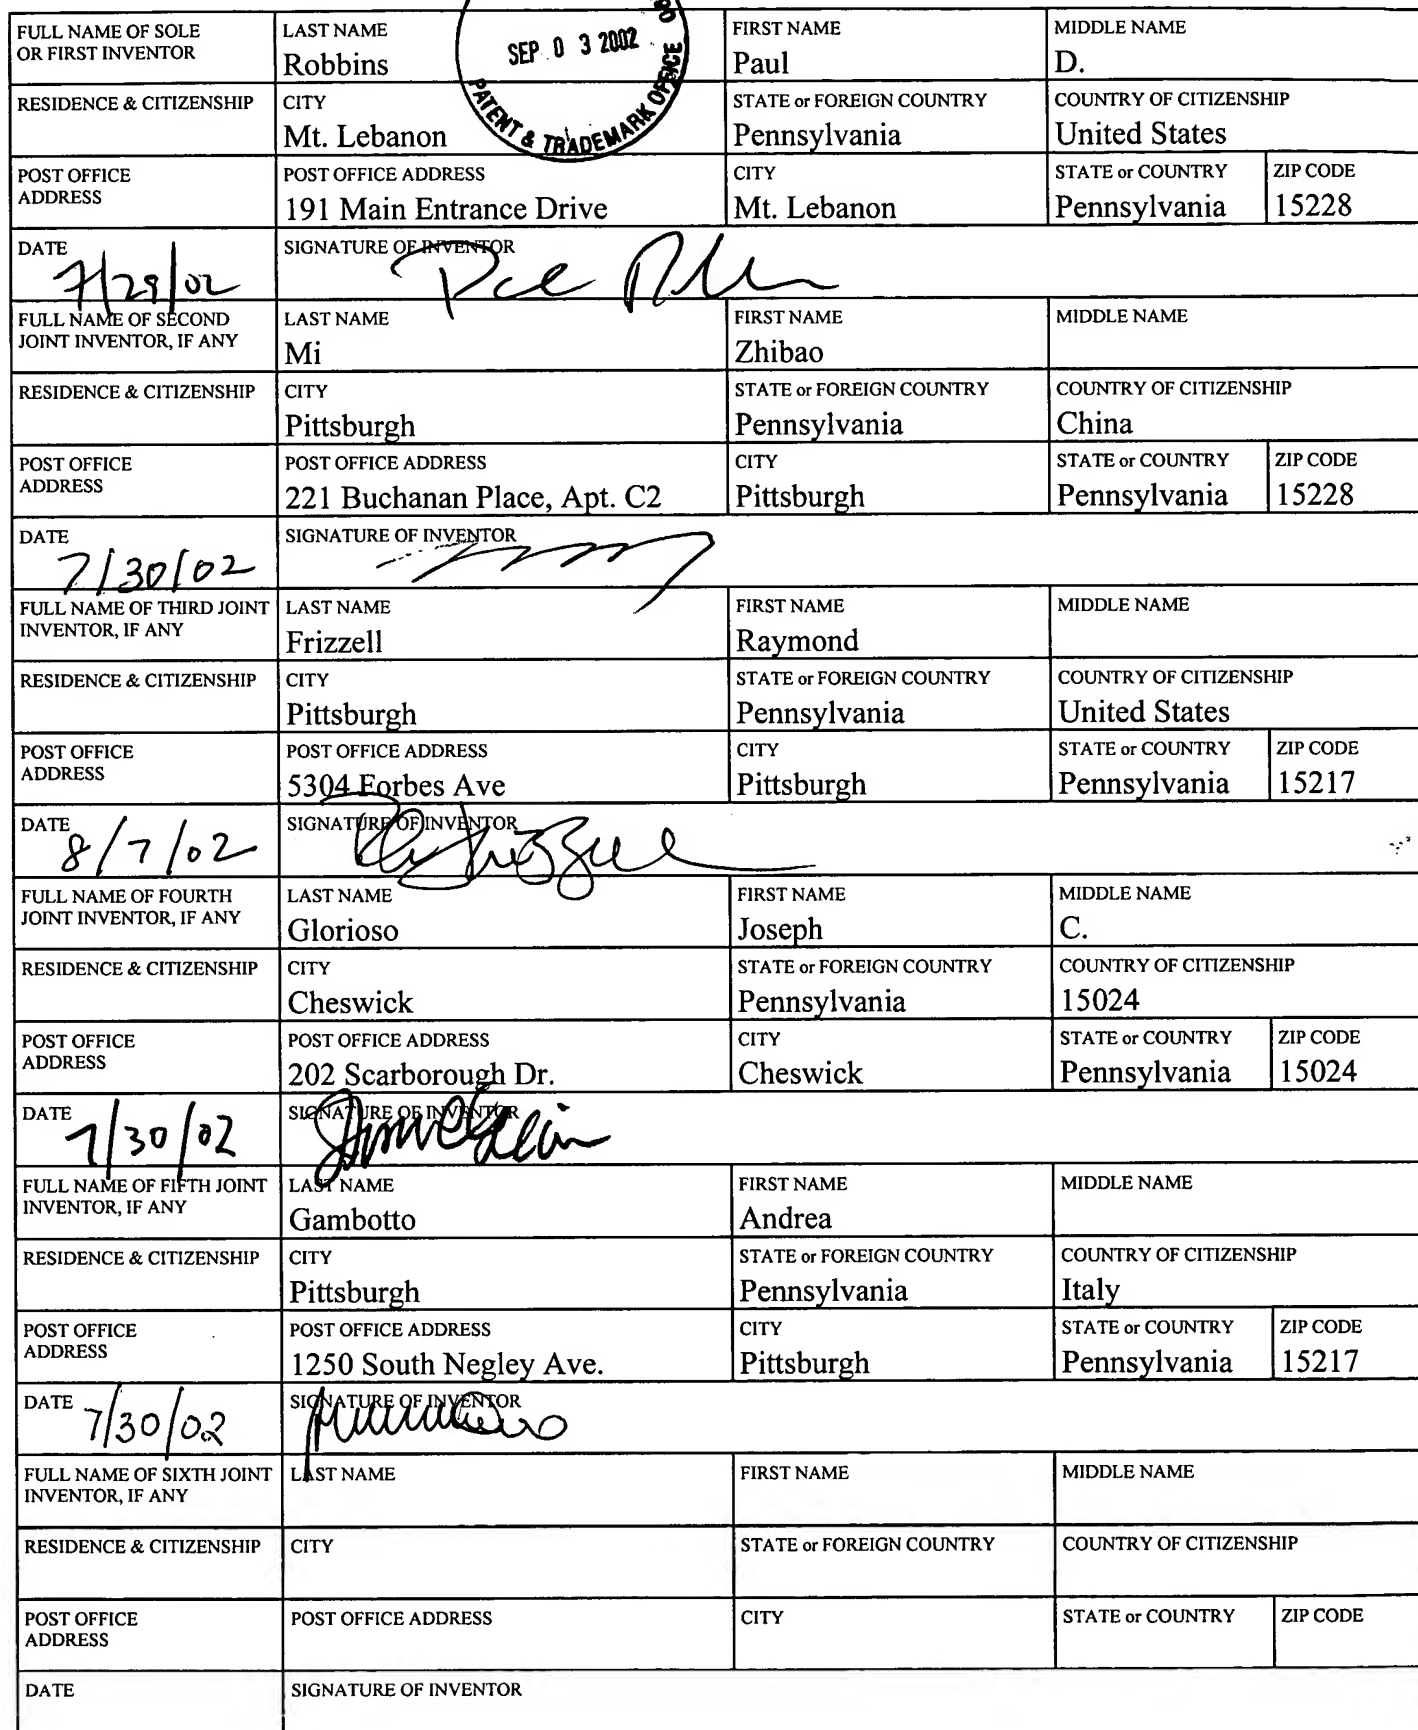 SEP 0 3 2002
PATENT & TRADEMARK OFFICE
FULL NAME OF SOLE
OR FIRST INVENTOR
LAST NAME
Robbins
FIRST NAME
Paul
MIDDLE NAME
D.
RESIDENCE & CITIZENSHIP
CITY
Mt. Lebanon
STATE or FOREIGN COUNTRY
Pennsylvania
COUNTRY OF CITIZENSHIP
United States
POST OFFICE
ADDRESS
POST OFFICE ADDRESS
191 Main Entrance Drive
CITY
Mt. Lebanon
STATE or COUNTRY
Pennsylvania
ZIP CODE
15228
DATE
7/29/02
SIGNATURE OF INVENTOR
FULL NAME OF SECOND
JOINT INVENTOR, IF ANY
LAST NAME
Mi
FIRST NAME
Zhibao
MIDDLE NAME
RESIDENCE & CITIZENSHIP
CITY
Pittsburgh
STATE or FOREIGN COUNTRY
Pennsylvania
COUNTRY OF CITIZENSHIP
China
POST OFFICE
ADDRESS
POST OFFICE ADDRESS
221 Buchanan Place, Apt. C2
CITY
Pittsburgh
STATE or COUNTRY
Pennsylvania
ZIP CODE
15228
DATE
7/30/02
SIGNATURE OF INVENTOR
FULL NAME OF THIRD JOINT
INVENTOR, IF ANY
LAST NAME
Frizzell
FIRST NAME
Raymond
MIDDLE NAME
RESIDENCE & CITIZENSHIP
CITY
Pittsburgh
STATE or FOREIGN COUNTRY
Pennsylvania
COUNTRY OF CITIZENSHIP
United States
POST OFFICE
ADDRESS
POST OFFICE ADDRESS
5304 Forbes Ave
CITY
Pittsburgh
STATE or COUNTRY
Pennsylvania
ZIP CODE
15217
DATE
8/7/02
SIGNATURE OF INVENTOR
FULL NAME OF FOURTH
JOINT INVENTOR, IF ANY
LAST NAME
Glorioso
FIRST NAME
Joseph
MIDDLE NAME
C.
RESIDENCE & CITIZENSHIP
CITY
Cheswick
STATE or FOREIGN COUNTRY
Pennsylvania
COUNTRY OF CITIZENSHIP
15024
POST OFFICE
ADDRESS
POST OFFICE ADDRESS
202 Scarborough Dr.
CITY
Cheswick
STATE or COUNTRY
Pennsylvania
ZIP CODE
15024
DATE
7/30/02
SIGNATURE OF INVENTOR
FULL NAME OF FIFTH JOINT
INVENTOR, IF ANY
LAST NAME
Gambotto
FIRST NAME
Andrea
MIDDLE NAME
RESIDENCE & CITIZENSHIP
CITY
Pittsburgh
STATE or FOREIGN COUNTRY
Pennsylvania
COUNTRY OF CITIZENSHIP
Italy
POST OFFICE
ADDRESS
POST OFFICE ADDRESS
1250 South Negley Ave.
CITY
Pittsburgh
STATE or COUNTRY
Pennsylvania
ZIP CODE
15217
DATE
7/30/02
SIGNATURE OF INVENTOR
FULL NAME OF SIXTH JOINT
INVENTOR, IF ANY
LAST NAME
FIRST NAME
MIDDLE NAME
RESIDENCE & CITIZENSHIP
CITY
STATE or FOREIGN COUNTRY
COUNTRY OF CITIZENSHIP
POST OFFICE
ADDRESS
POST OFFICE ADDRESS
CITY
STATE or COUNTRY
ZIP CODE
DATE
SIGNATURE OF INVENTOR